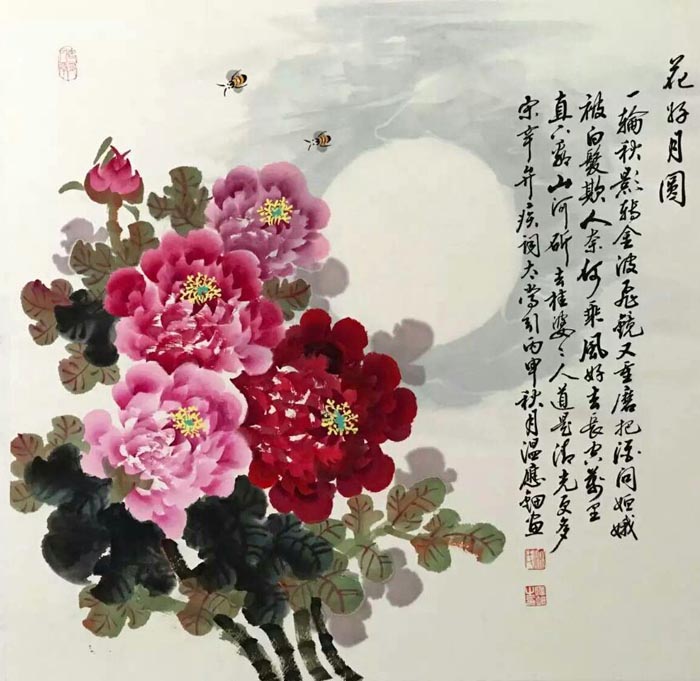 花好月圓
一輪秋影轉金波飛鏡又重磨把酒問姮娥
被白髮欺人奈何乘風好去長空萬里
直下看山河斫去桂婆々人道是清光更多
宋辛弃疾詞太常引丙申秋月温應鈿画